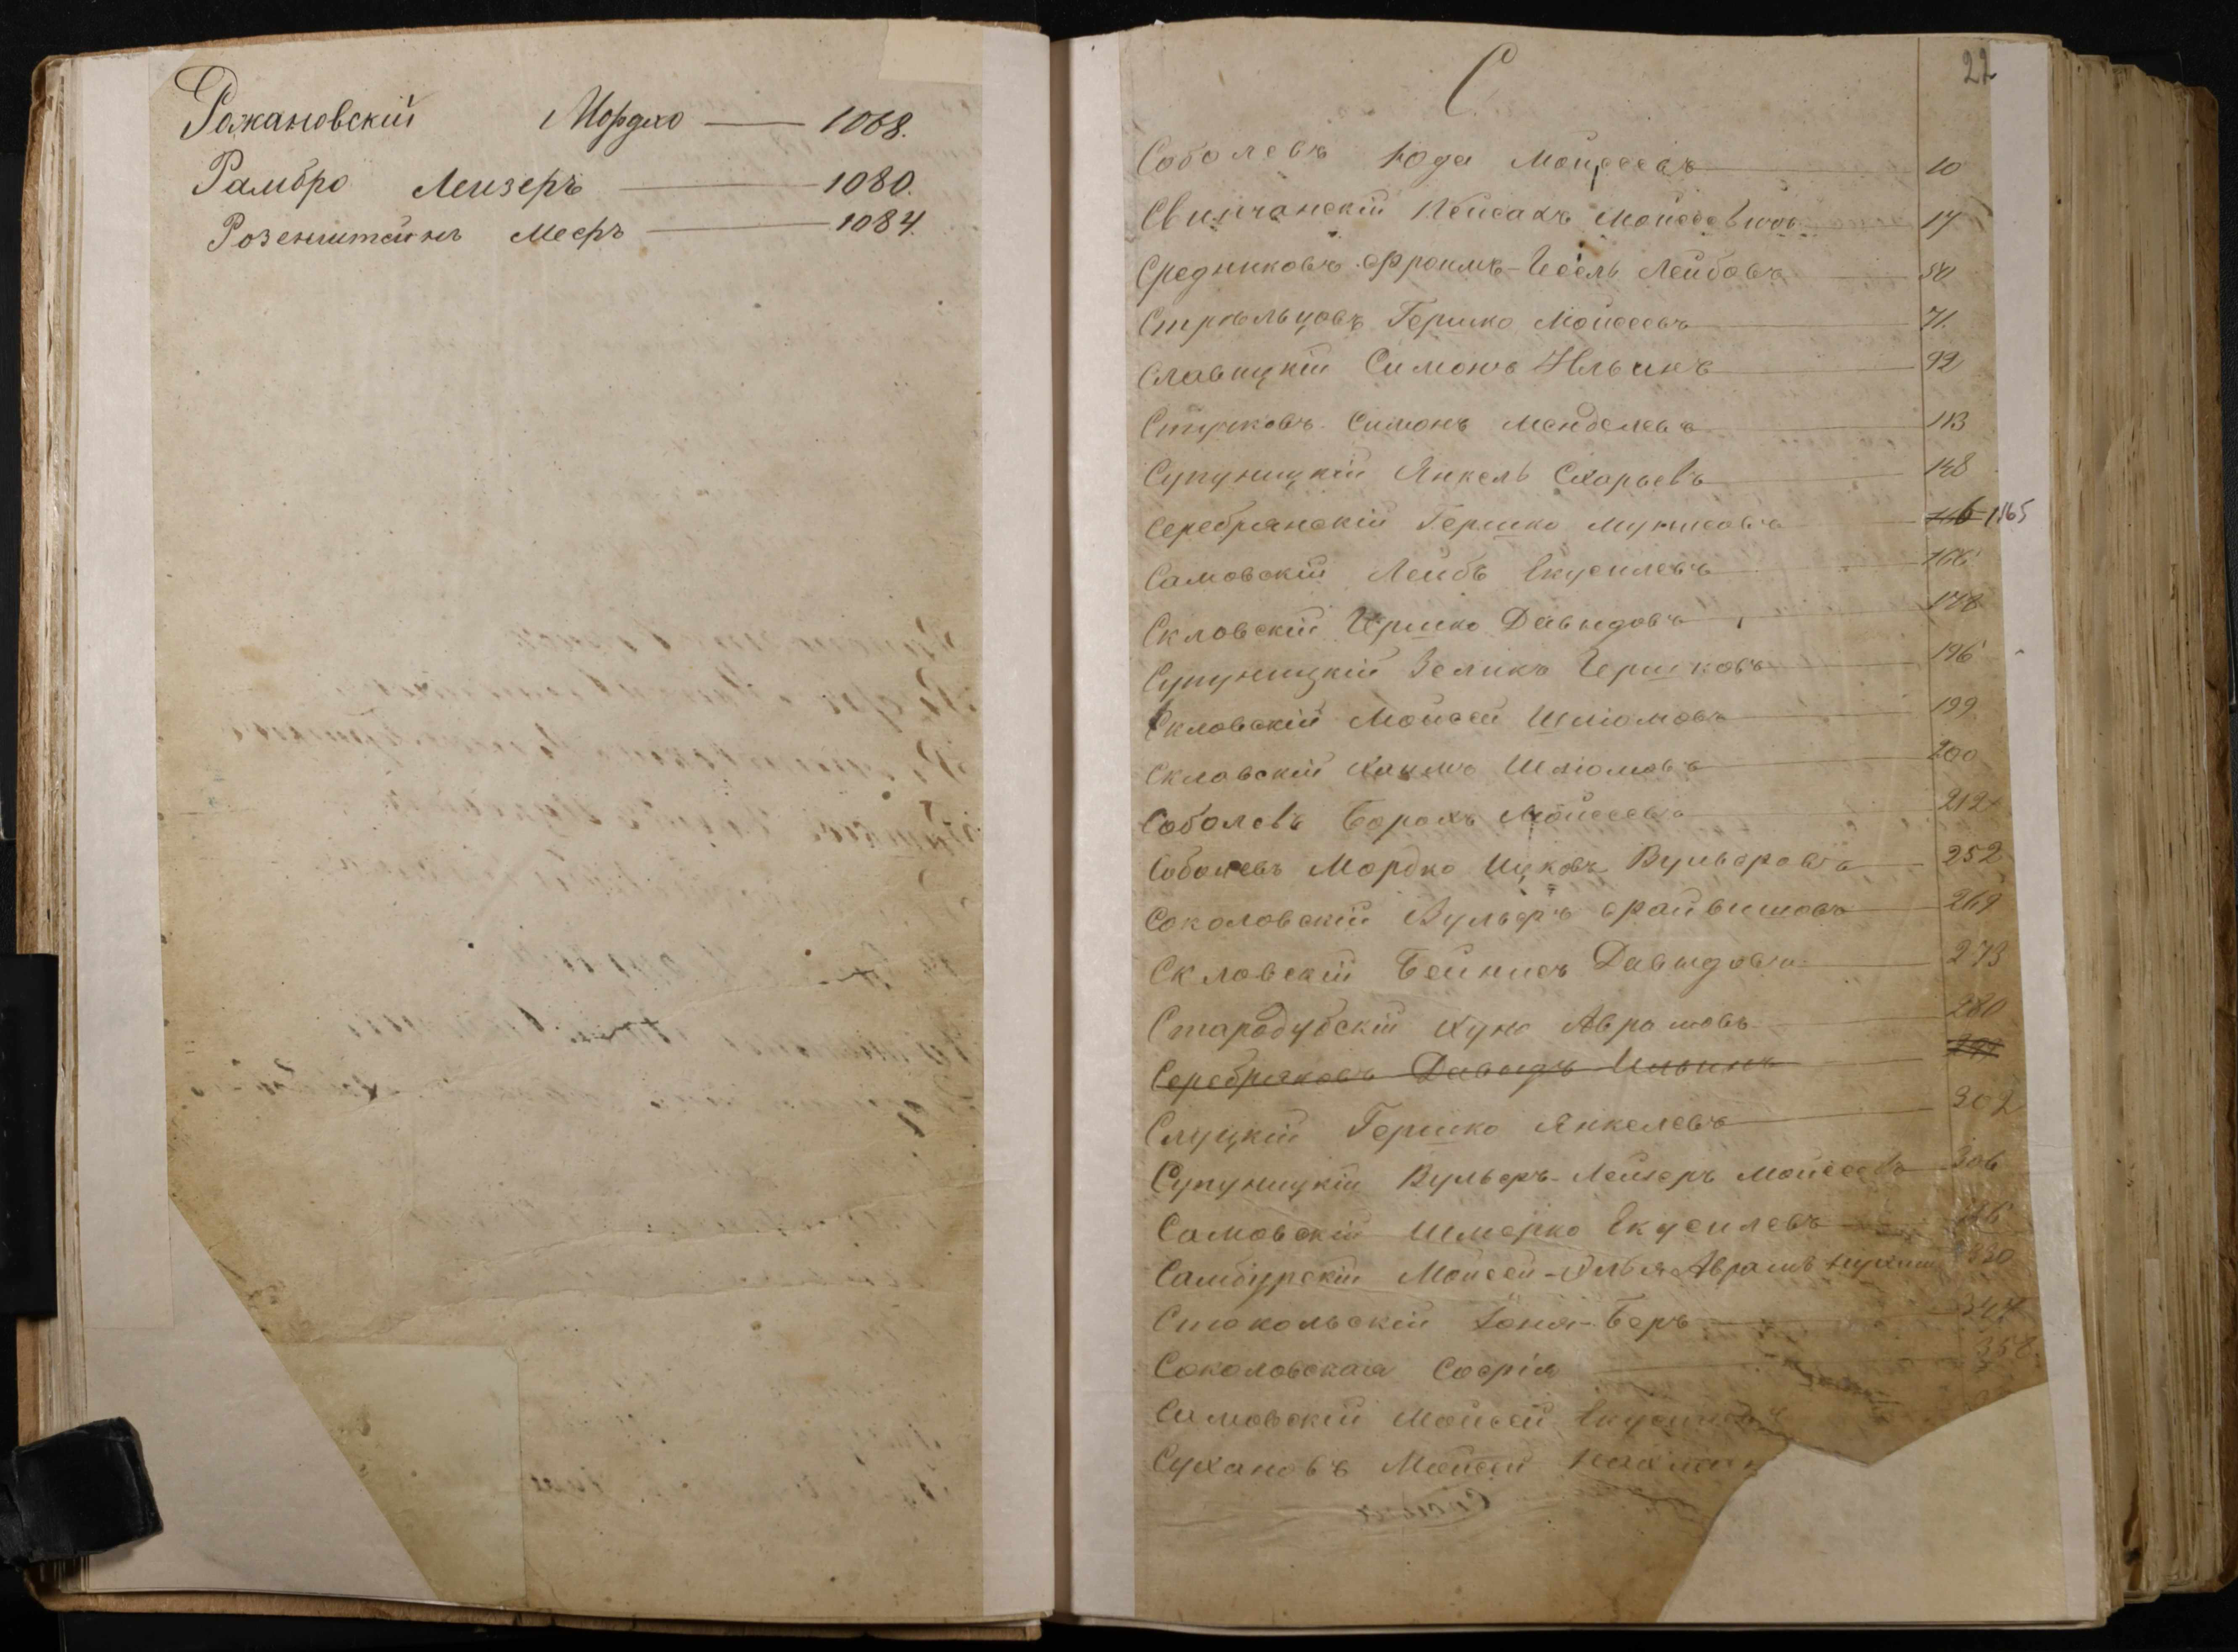 Рожановскій Мордхо — 1068.
Рамбро Лейзеръ — 1080.
Розенштейнъ Мееръ — 1084.
22
С
Соболевъ Юда Мойсеевъ 10
Свинчанскій Пейсахъ Мойсеевичъ 17
Средниковъ Фроимъ-Іосель Лейбовъ 50
Стрѣльцовъ Гершко Мойсеевъ 71
Славицкій Симонъ Ильинъ 92
Симонъ Менделевъ 113
Супуницкій Янкель Схарьевъ 148
Серебрянскій Гершко Мунисовъ 165
Самовскій Лейбъ Екусилевъ 166
Скловскій Гершко Давыдовъ 178
Супуницкій Зеликъ Гершковъ 196
Скловскій Мойсей Шліомовъ 199
Скловскій Хаимъ Шліомовъ 200
Соболевъ Борохъ Мойсеевъ 212
Соболевъ Мордко Ицковъ Вульфовъ 252
Соколовскій Вульфъ Файвишовъ 269
Скловскій Бейнисъ Давыдовъ 273
Стародубскій Хуно Аврамовъ 280
Серебряковъ Давыдъ Ильинъ
Слуцкій Гершко Янкелевъ 302
Супуницкій Вульфъ-Лейзеръ Мойсеевъ 306
Самовскій Шмерко Екусилевъ
Самбурскій Мойсей-Элья Аврамъ 330
Стокольскій Іоня-Беръ 344
Соколовская Софія 358
Самовскій Мойсей
Сухановъ Мойсей